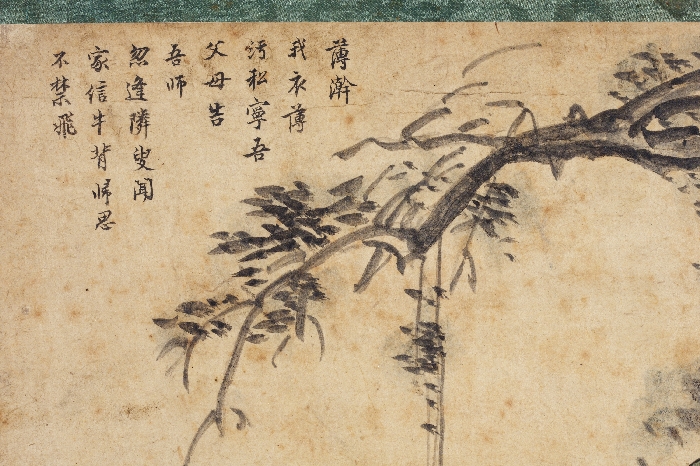 薄澣
我衣薄
汚私寧吾
父母告
吾師
忽逢隣叟聞
家信牛背帰思
不禁飛